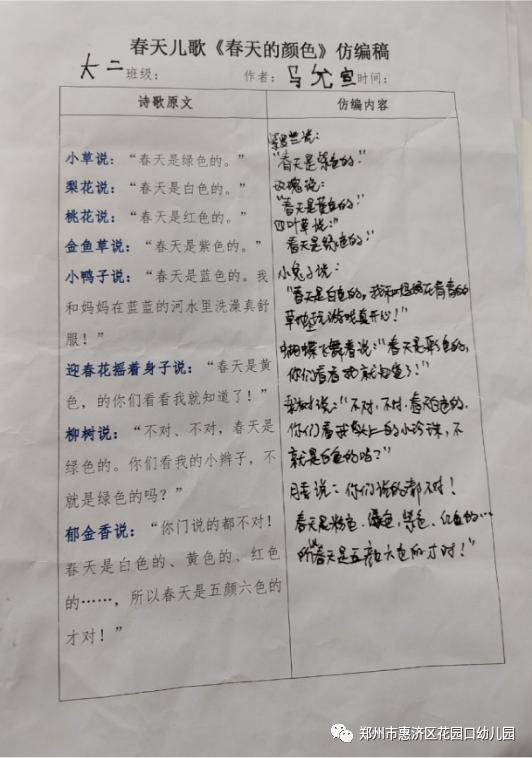 春天儿歌《春天的颜色》仿编稿
大二班级： 作者：马允宣 时间：
诗歌原文
小草说：“春天是绿色的。”
梨花说：“春天是白色的。”
桃花说：“春天是红色的。”
金鱼草说：“春天是紫色的。”
小鸭子说：“春天是蓝色的。我
和妈妈在蓝蓝的河水里洗澡真舒
服！”
迎春花摇着身子说：“春天是黄
色，的你们看看我就知道了！”
柳树说：“不对、不对，春天是
绿色的。你们看我的小辫子，不
就是绿色的吗？”
郁金香说：“你门说的都不对！
春天是白色的、黄色的、红色
的……，所以春天是五颜六色的
才对！”
仿编内容
紫罗兰说：
“春天是紫色的！”
玫瑰说：
“春天是黄色的！”
四叶草说：“
春天是绿色的！”
小兔子说：
“春天是白色的，我和妈妈在青青的
草地玩游戏真开心！”
蝴蝶飞舞着说：“春天是彩色的，
你们看看我就知道了！”
梨树说：“不对，不对，春天是白色的，
你们看我头上的小珍珠，不
就是白色的吗？”
月季说：你们说的都不对！
春天是粉色、绿色、紫色、红色的…
所以春天是五颜六色的才对！”
郑州市惠济区花园口幼儿园